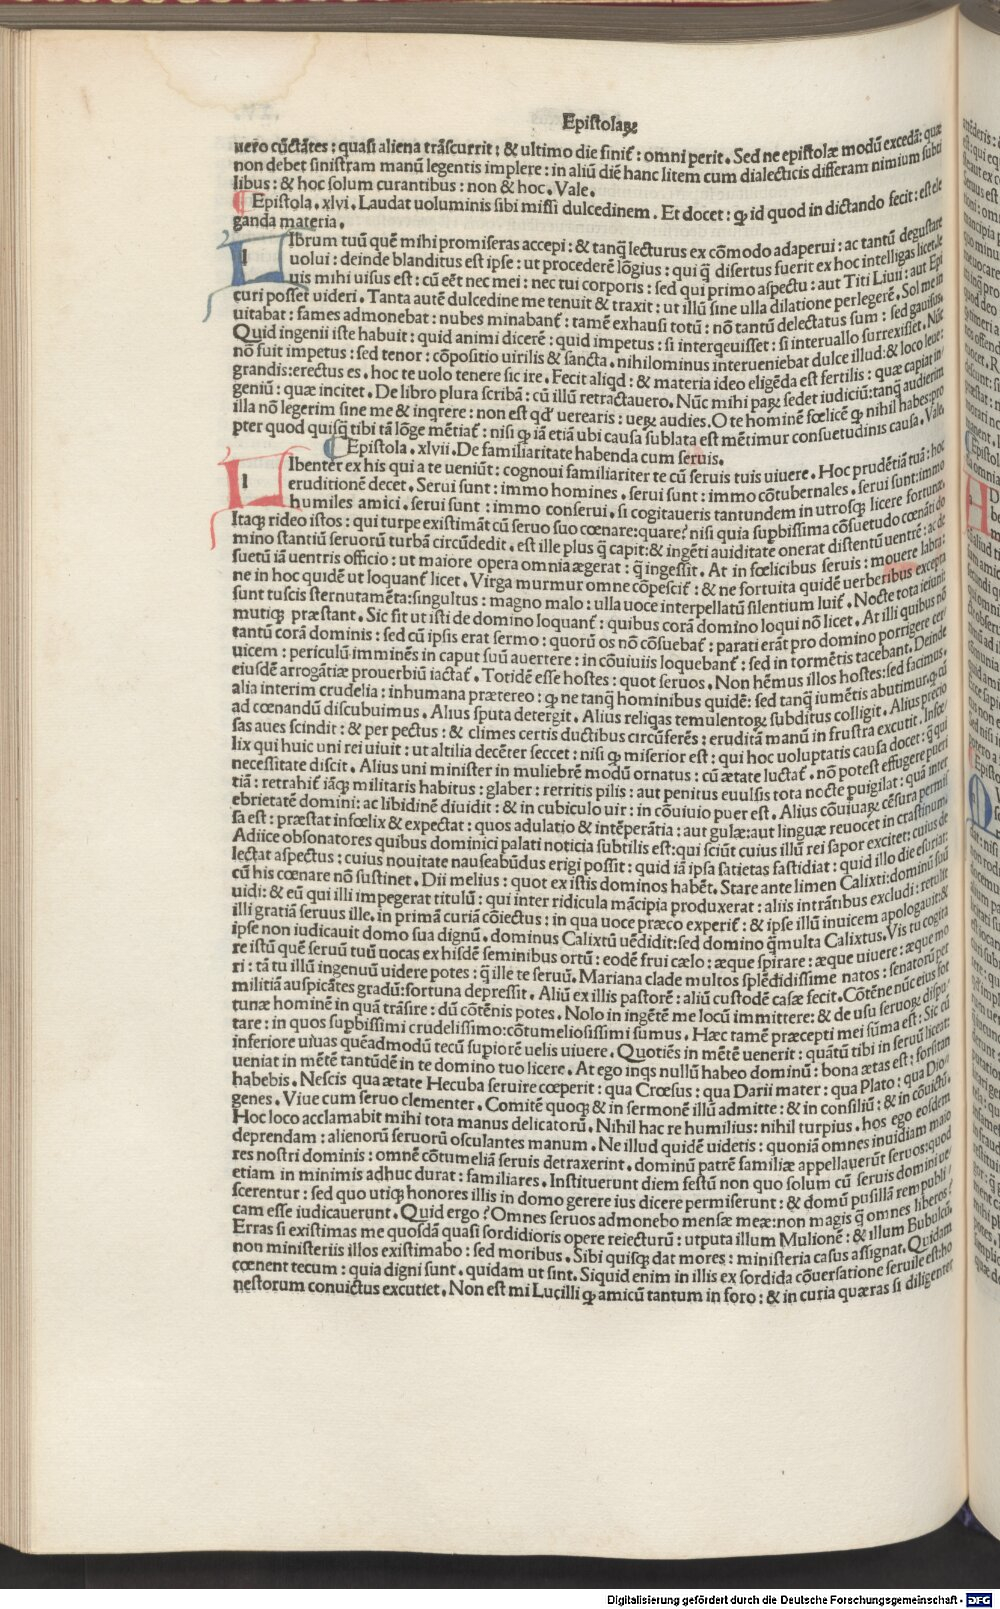 Epistolaꝝ
uero cūctātes : quasi aliena trāscurrit : & ultimo die finiť : omni perit . Sed ne epistolæ modū excedā : quæ
non debet sinistram manū legentis implere : in aliū diē hanc litem cum dialecticis differam nimium subti
libus : & hoc solum curantibus : non & hoc . Vale .
Epistola . xlvi . Laudat uoluminis sibi missi dulcedinem . Et docet : ꝙ id quod in dictando fecit : est ele
ganda materia .
LIbrum tuū quē mihi promiseras accepi : & tanq̄ lecturus ex cōmodo adaperui : ac tantū degustare
uolui : deinde blanditus est ipse : ut procederē lōgius : qui q̄ disertus fuerit ex hoc intelligas licet . le
uis mihi uisus est : cū eēt nec mei : nec tui corporis : sed qui primo aspectu : aut Titi Liuii : aut Epi
curi posset uideri . Tanta autē dulcedine me tenuit & traxit : ut illū sine ulla dilatione perlegerē . Sol me in
uitabat : fames admonebat : nubes minabanť : tamē exhausi totū : nō tantū delectatus sum : sed gauisus .
Quid ingenii iste habuit : quid animi dicerē : quid impetus : si interqeuisset : si interuallo surrexisset . Nūc
nō fuit impetus : sed tenor : cōpositio uirilis & sancta . nihilominus interueniebat dulce illud : & loco leue :
grandis : erectus es . hoc te uolo tenere sic ire . Fecit aliqd : & materia ideo eligēda est fertilis : quæ capiat in
geniū : quæ incitet . De libro plura scribā : cū illū retractauero . Nūc mihi paꝝ sedet iudiciū : tanq̄ audierim
illa nō legerim sine me & inqrere : non est qd' uerearis : ueꝝ audies . O te hominē fœlicē ꝙ nihil habes : pro
pter quod quisq̄ tibi tā lōge mētiať : nisi ꝙ iā etiā ubi causa sublata est mētimur consuetudinis causa . Vale .
Epistola . xlvii . De familiaritate habenda cum seruis .
LIbenter ex his qui a te ueniūt : cognoui familiariter te cū seruis tuis uiuere . Hoc prudētiā tuā : hoc
eruditionē decet . Serui sunt : immo homines . serui sunt : immo cōtubernales . serui sunt : immo
humiles amici . serui sunt : immo conserui . si cogitaueris tantundem in utrosqꝫ licere fortunæ .
Itaqꝫ rideo istos : qui turpe existimāt cū seruo suo cœnare : quare? nisi quia supbissima cōsuetudo cœnāti do
mino stantiū seruorū turbā circūdedit . est ille plus q̄ capit : & ingēti auiditate onerat distentū uentrē : ac de
suetū iā uentris officio : ut maiore opera omnia ægerat : q̄ ingessit . At in fœlicibus seruis : mouere labra :
ne in hoc quidē ut loquanť licet . Virga murmur omne cōpesciť : & ne fortuita quidē uerberibus excepta
sunt tussis sternutamēta : singultus : magno malo : ulla uoce interpellatū silentium luiť . Nocte tota ieiuni
mutiqꝫ præstant . Sic fit ut isti de domino loquanť : quibus corā domino loqui nō licet . At illi quibus nō
tantū corā dominis : sed cū ipsis erat sermo : quorū os nō cōsuebať : parati erāt pro domino porrigere cer
uicem : periculū imminēs in caput suū auertere : in cōuiuiis loquebanť : sed in tormētis tacebant . Deinde
eiusdē arrogātiæ prouerbiū iactať . Totidē esse hostes : quot seruos . Non hēmus illos hostes : sed facimus .
alia interim crudelia : inhumana prætereo : ꝙ ne tanq̄ hominibus quidē : sed tanq̄ iumētis abutimur . ꝙ cū
ad cœnandū discubuimus . Alius sputa detergit . Alius reliqas temulentoꝝ subditus colligit . Alius precio
sas aues scindit : & per pectus : & climes certis ductibus circūferēs : eruditā manū in frustra excutit . Infœ
lix qui huic uni rei uiuit : ut altilia decēter seccet : nisi ꝙ miserior est : qui hoc uoluptatis causa docet : q̄ qui
necessitate discit . Alius uni minister in muliebrē modū ornatus : cū ætate luctať . nō potest effugere pueri
tiā : retrahiť iāqꝫ militaris habitus : glaber : retritis pilis : aut penitus euulsis tota nocte puigilat : quā inter
ebrietatē domini : ac libidinē diuidit : & in cubiculo uir : in cōuiuio puer est . Alius cōuiuaꝝ cēsura permis
sa est : præstat infœlix & expectat : quos adulatio & intēperātia : aut gulæ : aut linguæ reuocet in crastinum .
Adiice obsonatores quibus dominici palati noticia subtilis est : qui sciūt cuius illū rei sapor excitet : cuius de
lectat aspectus : cuius nouitate nauseabūdus erigi possit : quid iā ipsa satietas fastidiat : quid illo die esuriat :
cū his cœnare nō sustinet . Dii melius : quot ex istis dominos habēt . Stare ante limen Calixti : dominū suū
uidi : & eū qui illi impegerat titulū : qui inter ridicula mācipia produxerat : aliis intrātibus excludi : retulit
illi gratiā seruus ille . in primā curiā cōiectus : in qua uoce præco experiť : & ipse illū inuicem apologauit : &
ipse non iudicauit domo sua dignū . dominus Calixtū uēdidit : sed domino q̄multa Calixtus . Vis tu cogita
re istū quē seruū tuū uocas ex hisdē seminibus ortū : eodē frui cælo : æque spirare : æque uiuere : æque mo
ri : tā tu illū ingenuū uidere potes : q̄ ille te seruū . Mariana clade multos splēdidissime natos : senatorū per
militiā auspicātes gradū : fortuna depressit . Aliū ex illis pastorē : aliū custodē casæ fecit . Cōtēne nūc eius for
tunæ hominē in quā trāsire : dū cōtēnis potes . Nolo in ingētē me locū immittere : & de usu seruoꝝ dispu
tare : in quos supbissimi crudelissimo : cōtumeliosissimi sumus . Hæc tamē præcepti mei sūma est : Sic cū
inferiore uiuas quēadmodū tecū supiorē uelis uiuere . Quotiēs in mētē uenerit : quātū tibi in seruū liceat :
ueniat in mētē tantūdē in te domino tuo licere . At ego inqs nullū habeo dominū : bona ætas est : forsitan
habebis . Nescis qua ætate Hecuba seruire cœperit : qua Crœsus : qua Darii mater : qua Plato : qua Dio
genes . Viue cum seruo clementer . Comitē quoqꝫ & in sermonē illū admitte : & in consiliū : & in cōuictū .
Hoc loco acclamabit mihi tota manus delicatorū . Nihil hac re humilius : nihil turpius . hos ego eosdem
deprendam : alienorū seruorū osculantes manum . Ne illud quidē uidetis : quoniā omnes inuidiam maio
res nostri dominis : omnē cōtumeliā seruis detraxerint . dominū patrē familiæ appellauerūt seruos : quod
etiam in minimis adhuc durat : familiares . Instituerunt diem festū non quo solum cū seruis domini ue
scerentur : sed quo utiqꝫ honores illis in domo gerere ius dicere permiserunt : & domū pusillā rempubli
cam esse iudicauerunt . Quid ergo? Omnes seruos admonebo mensæ meæ : non magis q̄ omnes liberos?
Erras si existimas me quosdā quasi sordidioris opere reiecturū : utputa illum Mulionē : & illum Bubulcū .
non ministeriis illos existimabo : sed moribus . Sibi quisqꝫ dat mores : ministeria casus assignat . Quidam
cœnent tecum : quia digni sunt . quidam ut sint . Siquid enim in illis ex sordida cōuersatione seruile est : ho
nestorum conuictus excutiet . Non est mi Lucilli ꝙ amicū tantum in foro : & in curia quæras si diligenter
Digitalisierung gefördert durch die Deutsche Forschungsgemeinschaft - DFG